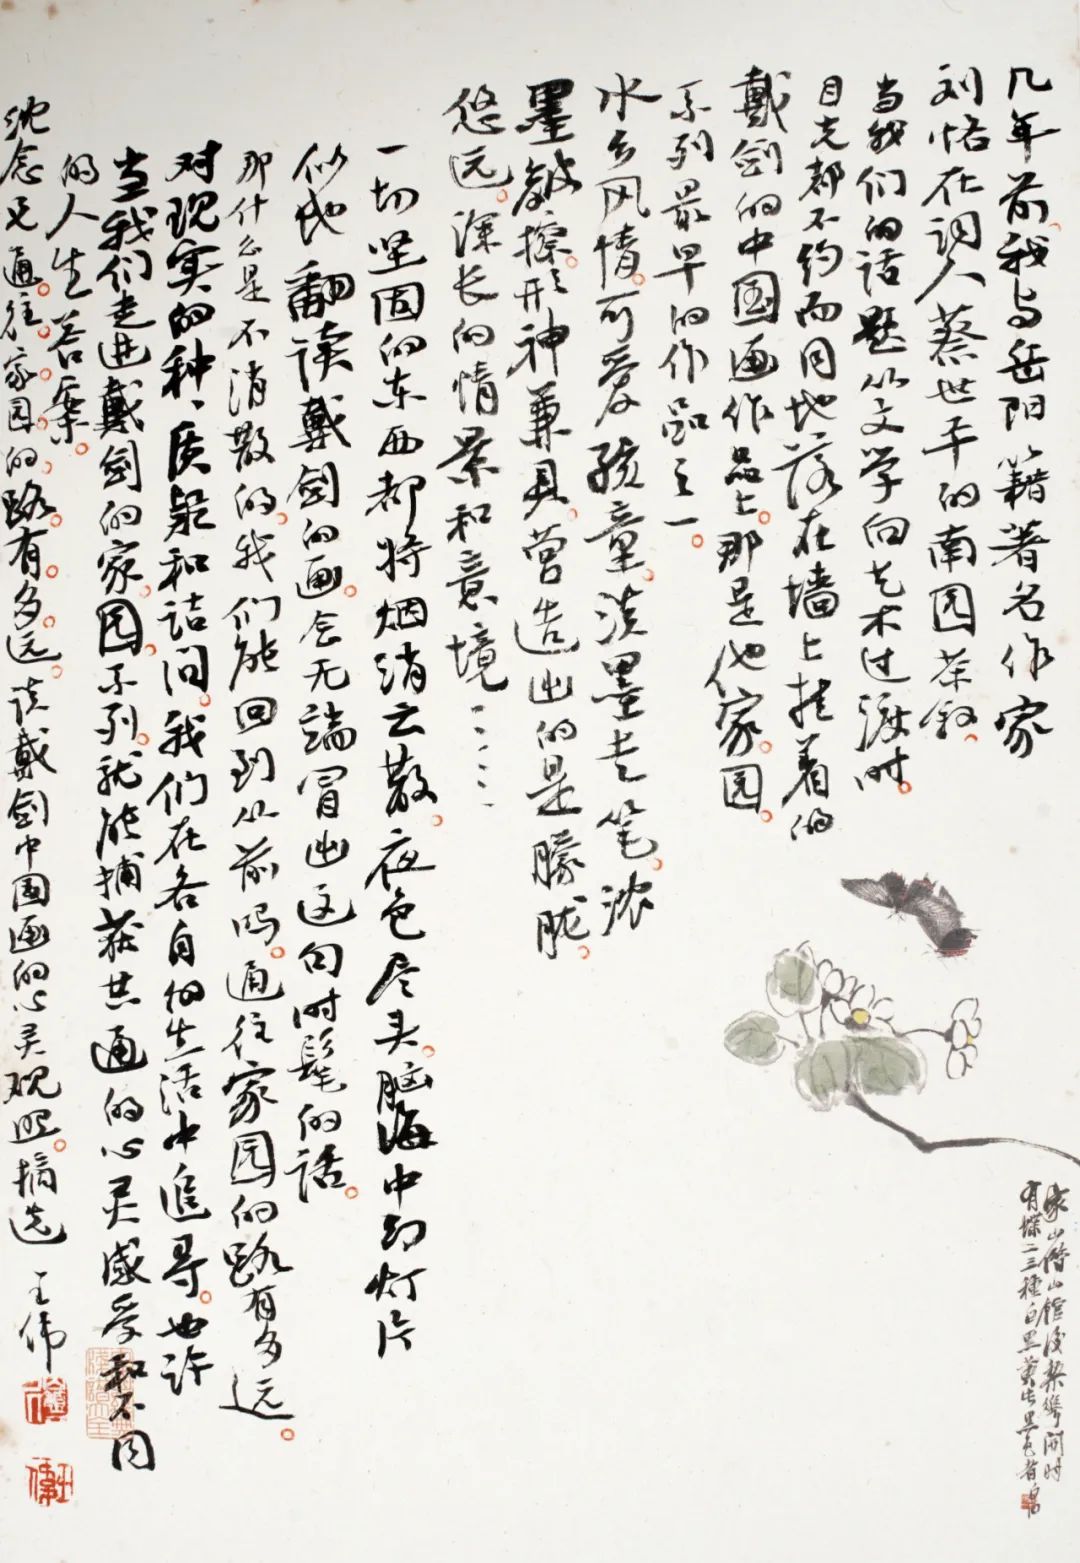 几年前。我与岳阳籍著名作家
刘恪在词人蔡世平的南园茶叙。
当我们的话题从文学向艺术过渡时。
目光都不约而同地落在墙上挂着的
戴剑的中国画作品上。那是他家。园。
系列最早的作品之一。
水乡风情。可爱孩童。淡墨走笔。浓
墨皴擦。形神兼具。营造出的是朦胧。
悠远。深长的情景和意境……
一切坚固的东西都将烟消云散。夜色尽头。脑海中幻灯片
似地翻读戴剑的画。会无端冒出这句时髦的话。
那什么是不消散的。我们能回到从前吗。通往家园的路有多远。
对现实的种种质疑和诘问。我们在各自的生活中追寻。也许
当我们走进戴剑的家。园。系列。就能捕获共通的心灵感受和不同
的人生答案。
沈念兄 通。往。家。园。的。路。有。多。远。读戴剑中国画的心灵观照。摘选
王伟
家山借山馆后梨华开时
有蝶二三种白黑黄